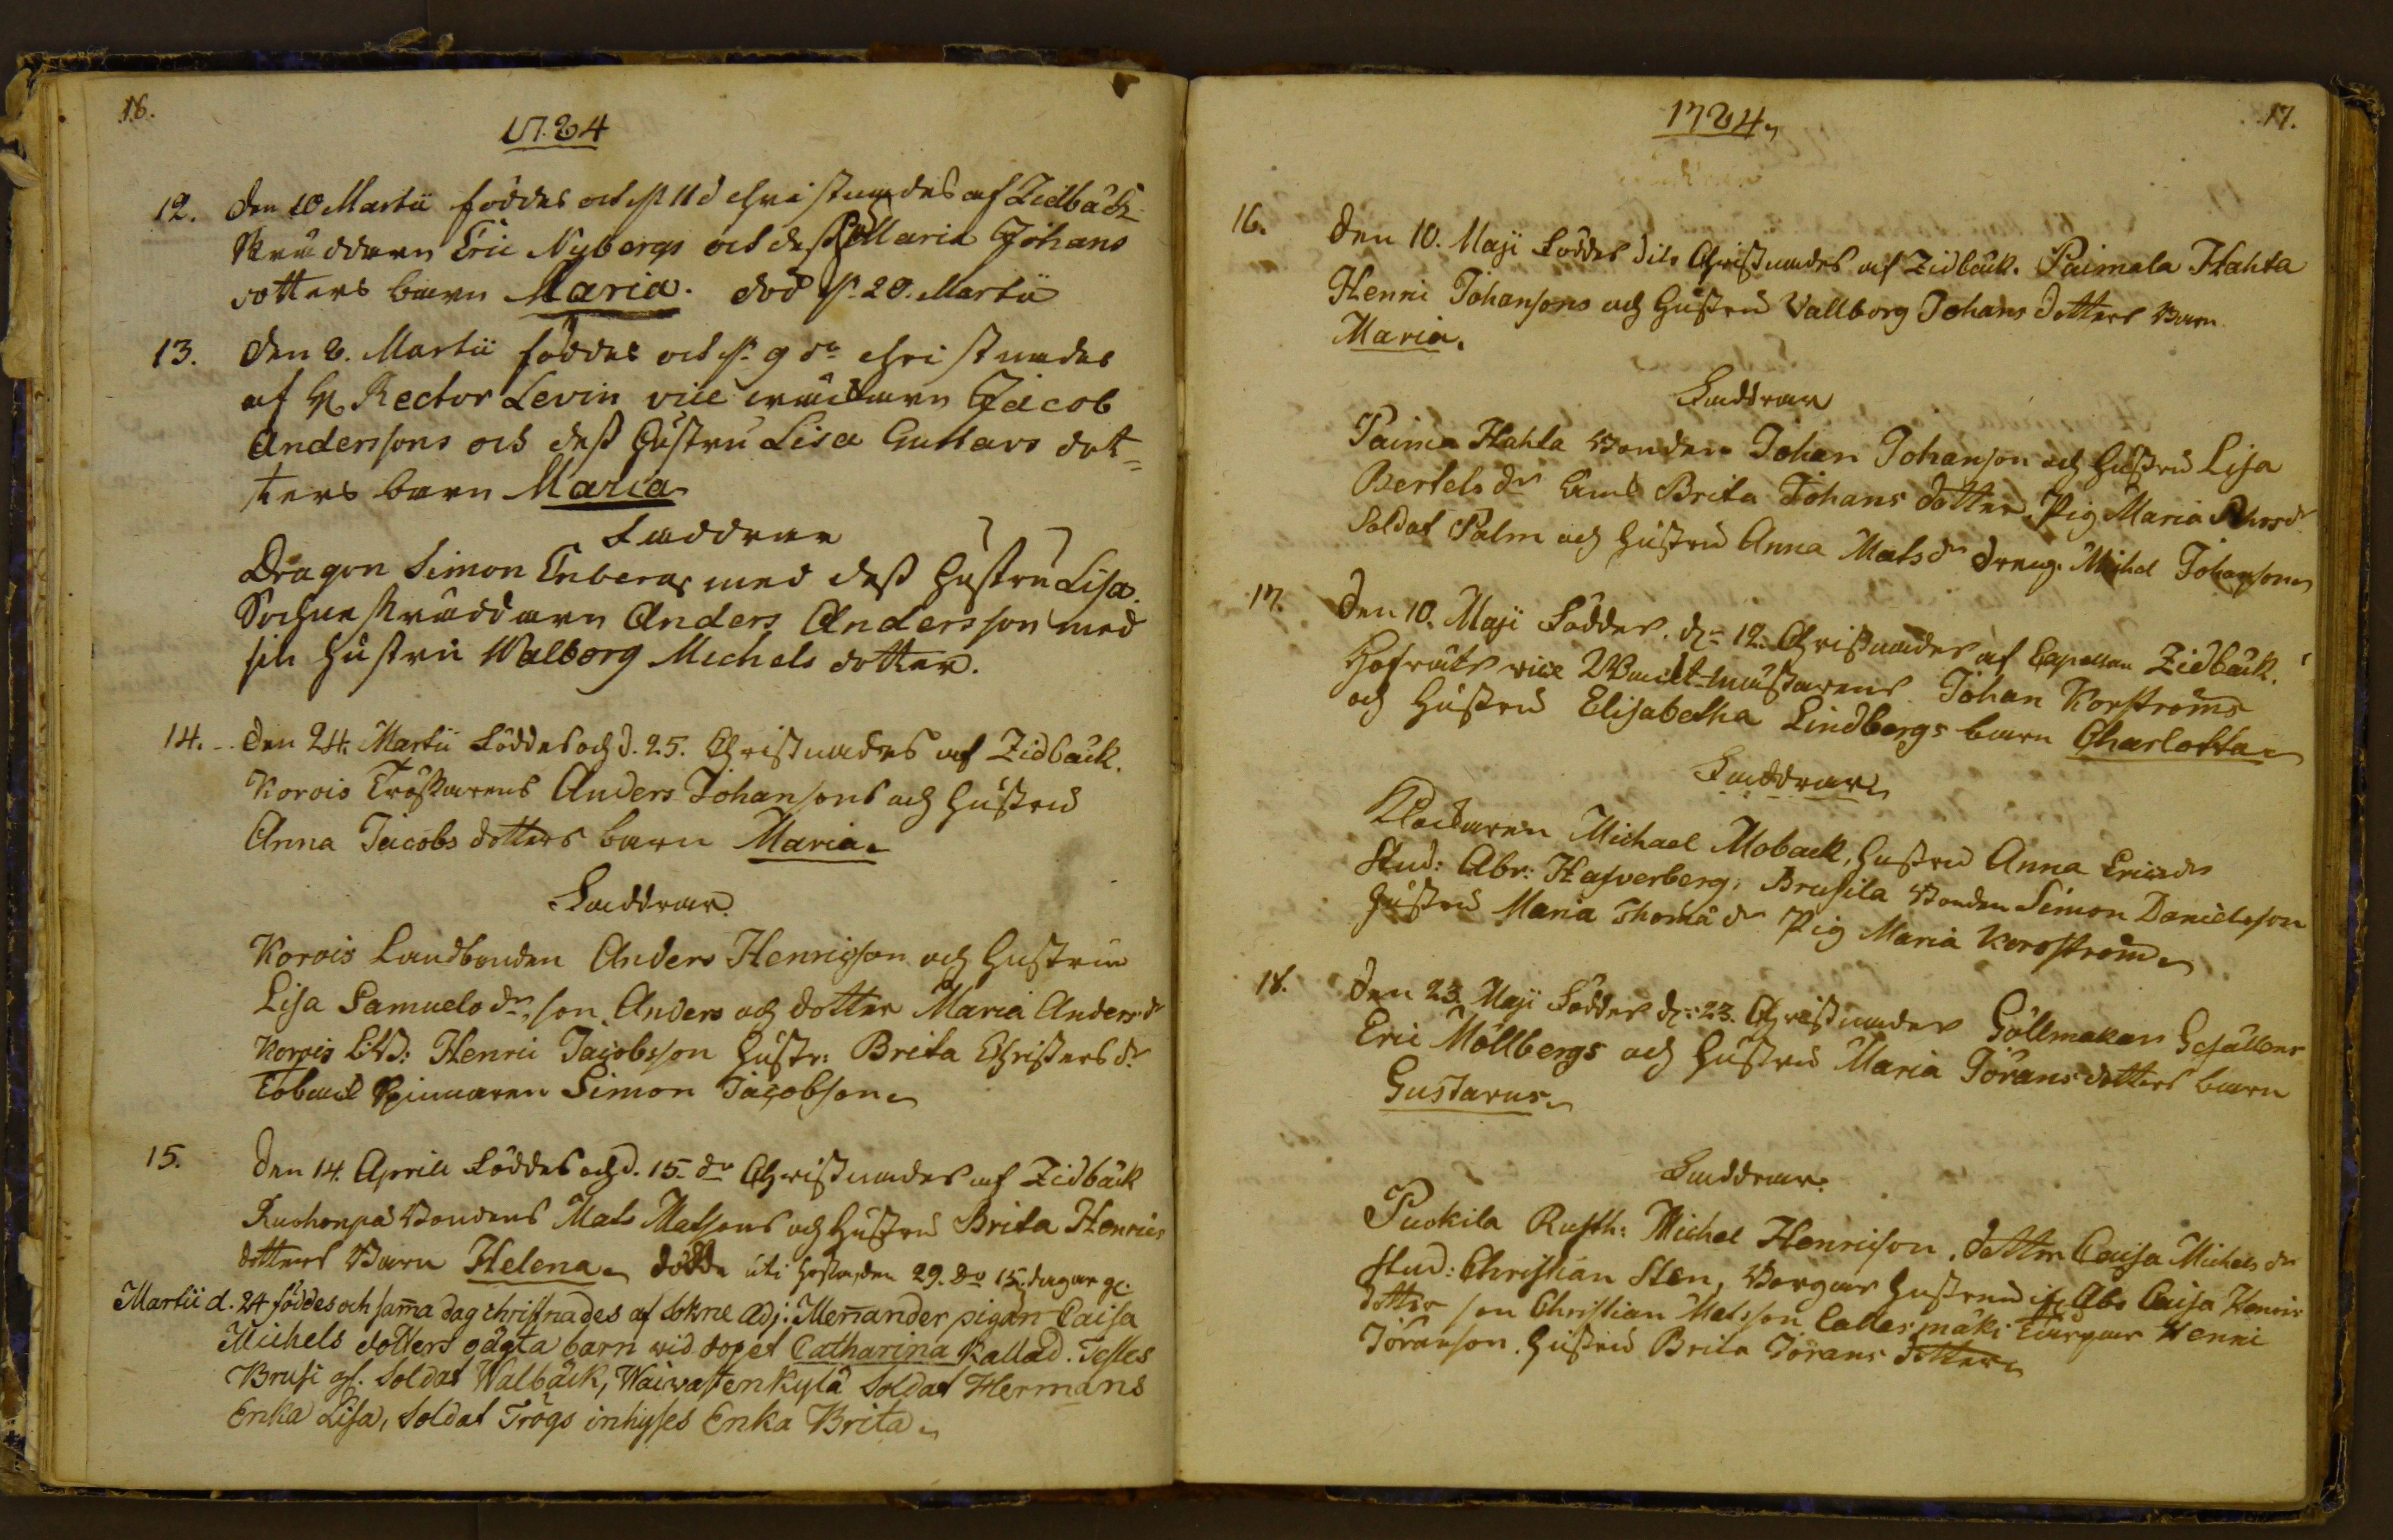 16.
1784
12. den 10 Martii föddes och d. 11 d christnades af Zidbäck
Skräddaren Eric Nybergs och dess H. Maria Johans
dotters barn Maria. död d. 20. Martii
13. den 8. Martii föddes och d. 9 dn christnades
af H. Rector Levin vice Jacob
Anderssons och dess Hustru Lisa Gustavs dot=
ters barn Maria
Faddrar
Dragon Simon Enberg med dess Hustru Lisa.
Sochne skräddaren Anders Andersson med
sin Hustru Walborg Michels dotter.
14. den 24. Martii Föddes och d. 25. Christnades af Zidbäck.
Korois Anders Johansons och Hustru
Anna Jacobs dotters barn Maria.
Faddrar.
Korois Landbonden Anders Henricson och Hustru
Lisa Samuels dr, son Anders och dotter Maria Anders dr
Korois Henric Jacobsson Hustr: Brita Christers dr
Tobaks Spinnaren Simon Jacobson
15. Den 14. Aprill Föddes och d. 15. dn Christnades af Zidbäck
Ruohonpä Bondens Mats Matsons och Hustru Brita Henrics
dotters Barn Helena. dödde uti hosta, den 29. do 15. dagar gl.
Martii d. 24 föddes och sama dag christnades af Sokne Adj. Menander pigan Caisa
Michels dotters oägta barn wid dopet Catharina kallad. Testes
Brusi gl. Soldat Walbäck, Waiwatenkylä Soldat Hermans
Enka Lisa, Soldat Trögs inhyses Enka Brita.
17.
1784.
16. Den 10. Maji Föddes dito Christnades af Zidbäck. Paimala Hahta
Henric Johansons och Hustru Vallborg Johans Dotters Barn
Maria.
Faddrar
Paima Hahta Bonden Johan Johanson och Hustru Lisa
Bertels dr Brita Johans dotter, Pig Maria
Soldat Palm och Hustru Anna Mats dr dreng. Michel Johanson
17. Den 10. Maji Föddes, d: 12. Christnades af Capellan Zidbäck.
Hofräts vice Wacktmästarens Johan Korströms
och Hustru Elisabetha Lindbergs barn Charlotta
Faddrar
Klockaren Michael Moback, Hustru Anna Erics dr
Stud: Abr: Hasverberg, Brusila Bonden Simon Danielsson
Hustru Maria Thomä dr Pig Maria Korsström
18. Den 23. Maji Föddes d: 23. Christnades Göllmakare Gesällens
Eric Möllbergs och Hustru Maria Jörans dotters barn
Gustavus.
Faddrar.
Puokila Rusth: Michel Henricson, dotter Caisa Michels dr
Stud: Christian Sten, Borgare Hustrun if. Åbo Caisa Henrics
dotter son Christian Matsson Callasmäki Henric
Jöranson. Hustru Brita Jörans dotter